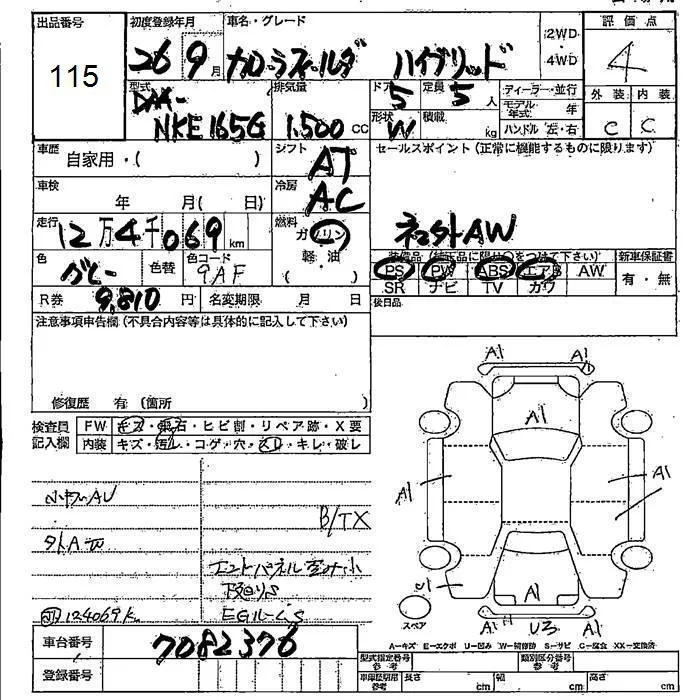 出品番号 初度登録年月 車名・グレード 評価点
115 26 9月 カローラフィールダ ハイブリッド 2WD・4WD 4
型式 排気量 ドア 定員 ディーラー・並行 外装 内装
DAA-NKE165G 1,500cc 5 5人 モデル年式 年 C C
形状 積載
W kg ハンドル 左・右
車歴 シフト セールスポイント(正常に機能するものに限ります)
自家用・( ) AT
車検 冷房
年 月( 日) AC
走行 燃料
12万4千069km ガソリン 外AW
軽・油
( )
色 色替 色コード 装備品(純正品に限り○をつけて下さい) 新車保証書
グレー 9AF PS PW ABS エアB AW 有・無
SR ナビ TV カワ
R券 9,810円 名変期限 月 日 後日品
注意事項申告欄(不具合内容等は具体的に記入して下さい)
修復歴 有 (箇所 )
検査員記入欄 FW キズ・飛石・ヒビ割・リペア跡・X要
内装 キズ・汚レ・コゲ・穴・スレ・キレ・破レ
B/TX
124069k
7082376
車台番号
登録番号
A1 A1
A1
A1 A1
U1 A1
スペア A1 U3 A1
A-キズ E-エクボ U-凹み W-補修跡 S-サビ C-腐食 XX-交換済
型式指定番号 参考 類別区分番号 参考
車庫証明用 参考 長さ cm 幅 cm 高さ cm